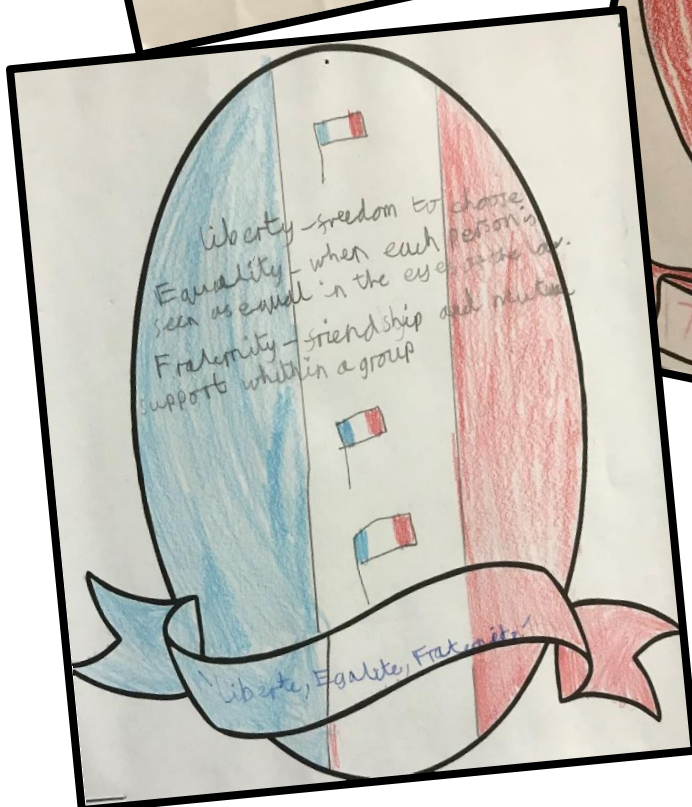 liberty - freedom to choose
Equality - when each person is
seen as equal in the eyes of the law.
Fraternity - friendship and mutual
support whithin a group
"Liberte, Egalete, Fraternité"